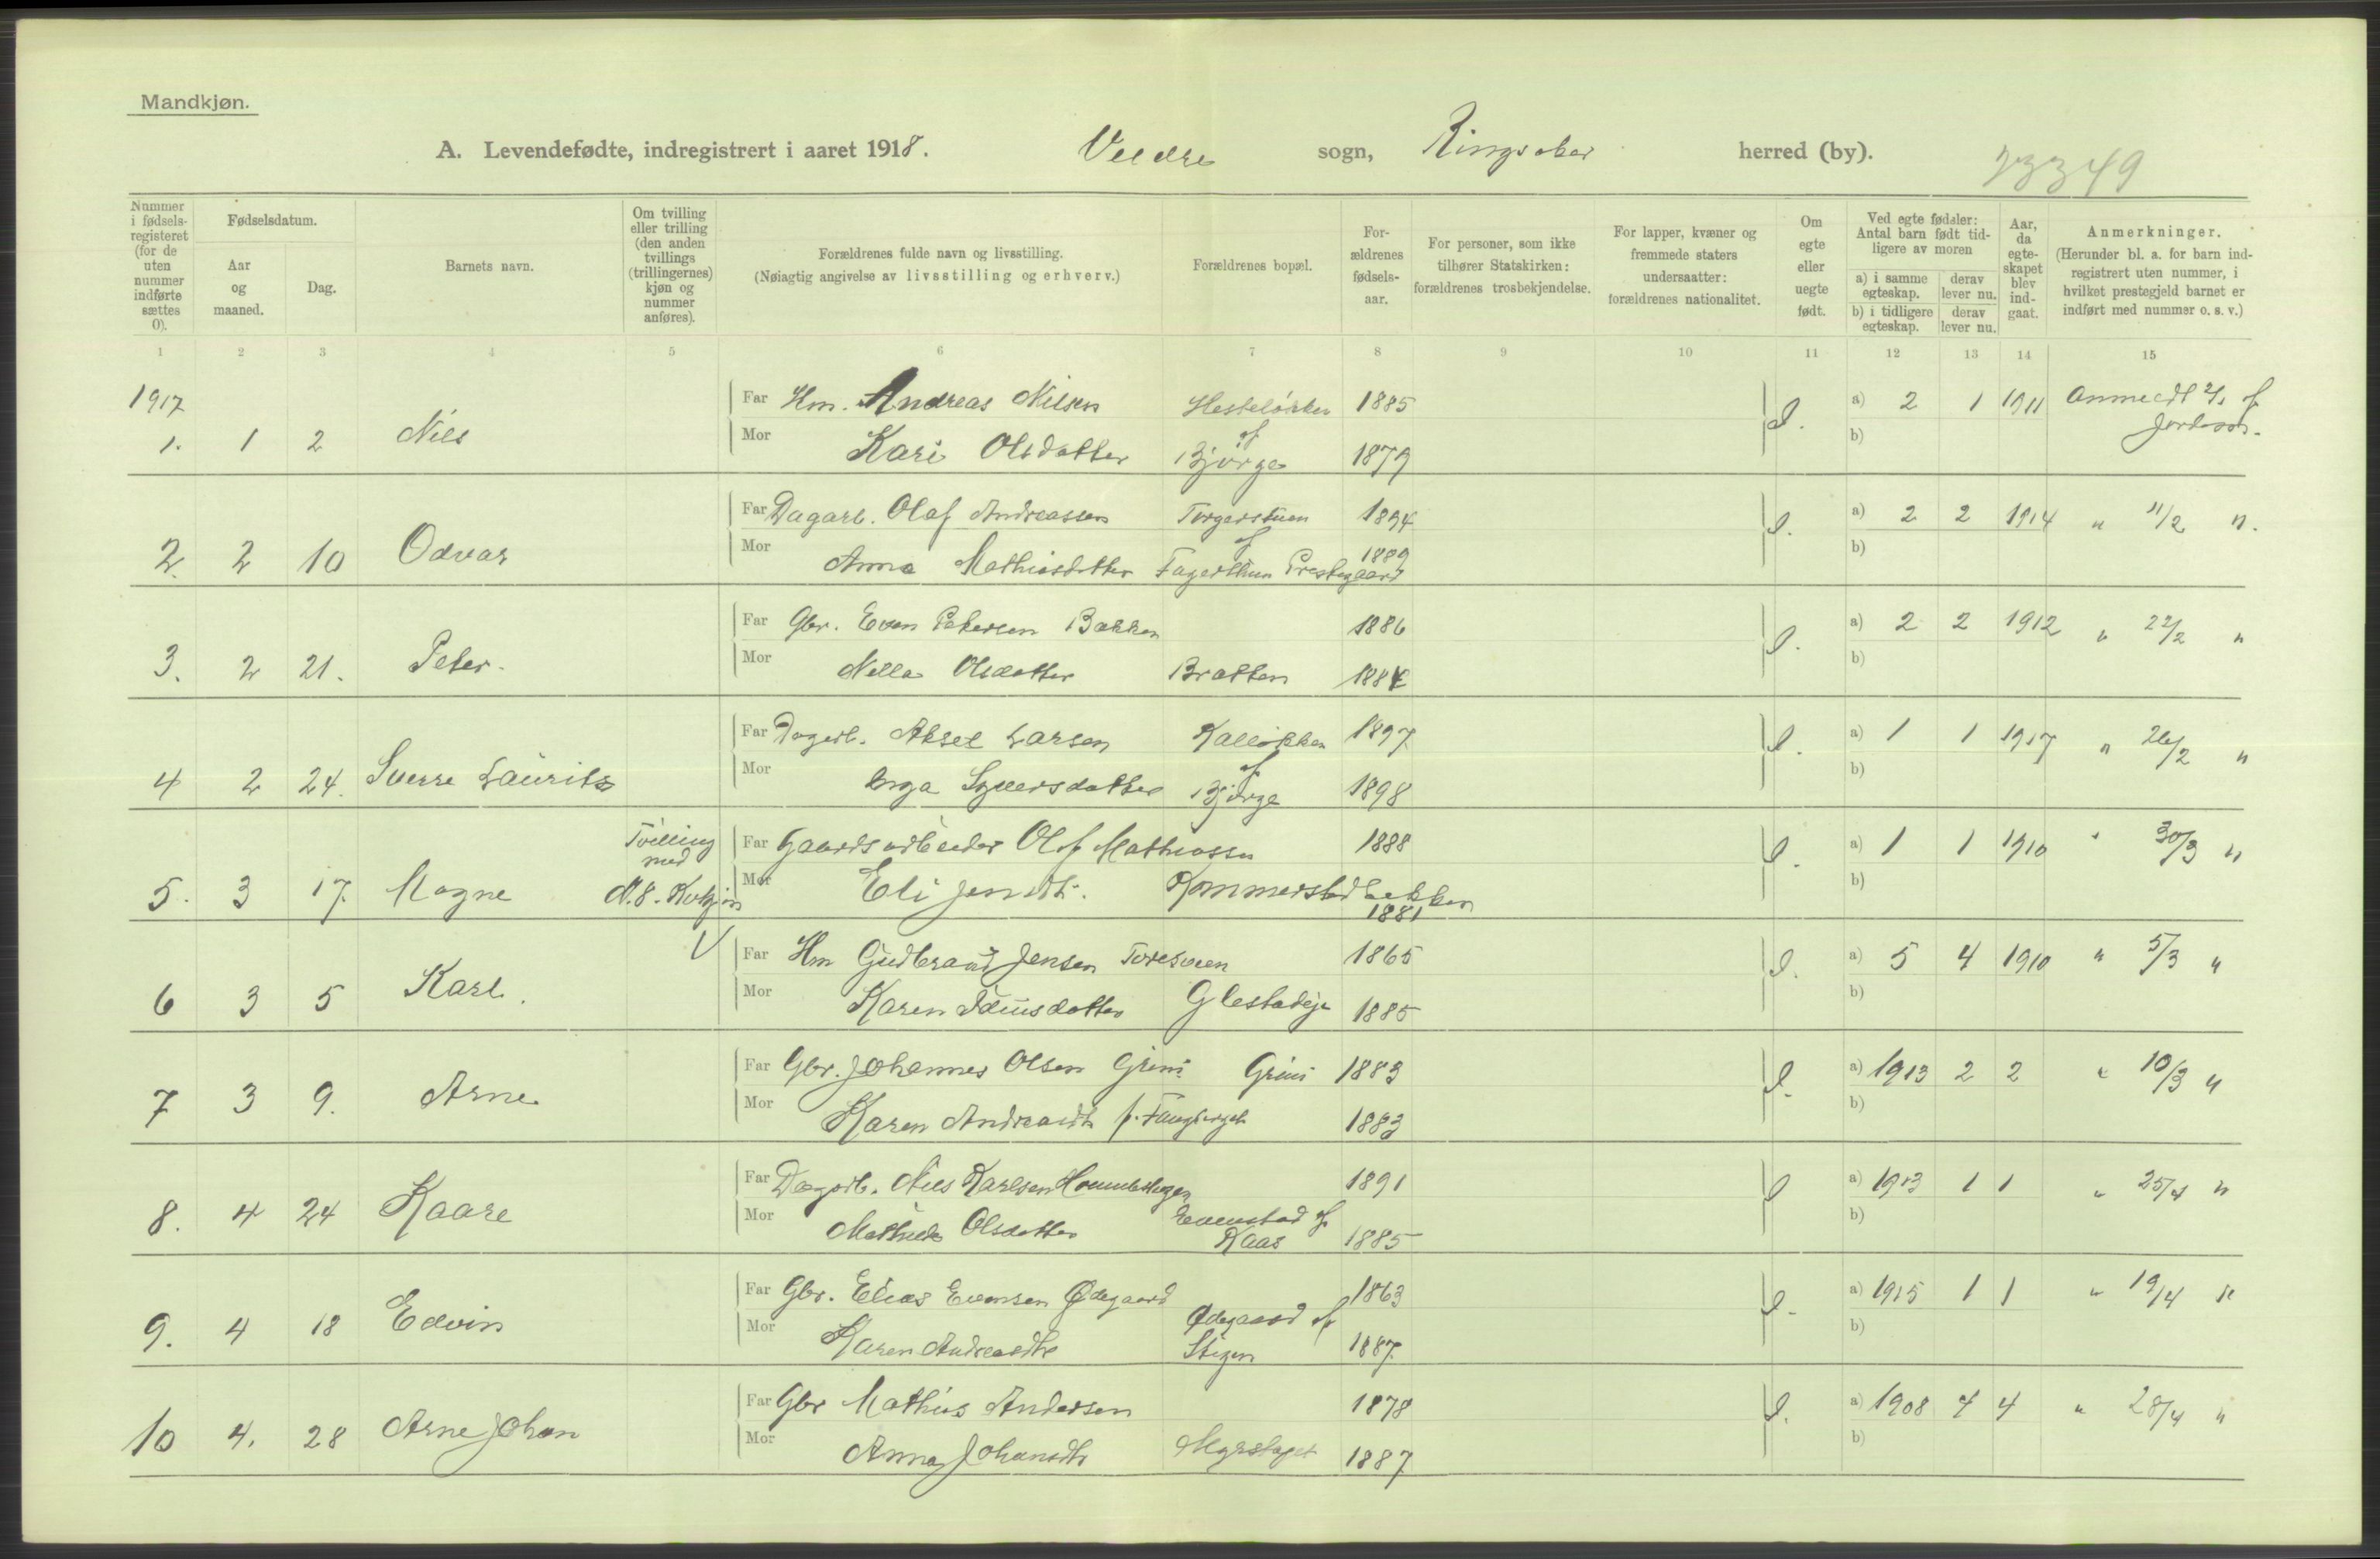 Mandkjøn.
A. Levendefødte, indregistrert i aaret 1918. Veldre sogn, Ringsaker herred (by).
23349
Nummer i fødsels-registeret (for de uten nummer indførte sættes 0).
Fødselsdatum.
Aar og maaned.
Dag.
Barnets navn.
Om tvilling eller trilling (den anden tvillings (trillingernes) kjøn og nummer anføres).
Forældrenes fulde navn og livsstilling.
(Nøiagtig angivelse av livsstilling og erhverv.)
Forældrenes bopæl.
For-ældrenes fødsels-aar.
For personer, som ikke tilhører Statskirken: forældrenes trosbekjendelse.
For lapper, kvæner og fremmede staters undersaatter: forældrenes nationalitet.
Om egte eller uegte født.
Ved egte fødsler: Antal barn født tid-ligere av moren
a) i samme egteskap.
derav lever nu.
b) i tidligere egteskap.
derav lever nu.
Aar, da egte-skapet blev ind-gaat.
Anmerkninger.
(Herunder bl. a. for barn ind-registrert uten nummer, i hvilket prestegjeld barnet er indført med nummer o. s. v.)
1 2 3 4 5 6 7 8 9 10 11 12 13 14 15
1917
Far Hm. Andreas Nilsen Hesteløkken 1885 a) 2 1 1911 Anmeldt
1. 1 2 Nils Mor Kari Olsdatter Bjørge 1879 b) Jordmor.
Far Dagarb. Olaf Andreassen Torgerstuen 1894 a) 2 2 1914 " 11/2 ".
2. 2 10 Odvar Mor Anna Mathiasdatter Prestegaard 1889 b)
Far Gbr. Even Petersen Bakken 1886 a) 2 2 1912 " 22/2 "
3. 2 21. Peter. Mor Nella Olsdatter Bratten 1884 b)
Far Dagarb. Aksel Larsen Kalløkken 1897 a) 1 1 1917 " 26/2 "
4 2 24. Sverre Laurits Mor Inga Syversdatter Bjørge 1898 b)
Tvilling med Far Gaardsarbeider Olaf Mathiassen 1888 a) 1 1 1910 " 30/3 "
5. 3 17. Magne N. 8. Kvkjøn Mor Eli Jensdt. Kommerstadbakken 1881 b)
Far Hm Gudbrand Jensen 1865 a) 5 4 1910 " 5/3 "
6 3 5 Karl. Mor Karen Glestadeje 1885 b)
Far Gbr. Johannes Olsen Grini Grini 1883 a) 1913 2 2 " 10/3 "
7 3 9. Arne Mor Karen Andreasdt f. Fangberget 1883 b)
Far Dagarb. Nils Karlsen 1891 a) 1913 1 1 " 25/4 "
8. 4 24 Kaare Mor Mathilde Olsdatter Evenstad af Kaas 1885 b)
Far Gbr. Elias Evensen Ødegaard 1863 a) 1915 1 1 " 19/4 "
9. 4 18 Edvin Mor Karen Andreasdtr Ødegaard af Stigen 1887 b)
Far Gbr Mathias Andersen 1878 a) 1908 4 4 " 28/4 "
10 4. 28 Arne Johan Mor Anna Johansdtr 1887 b)